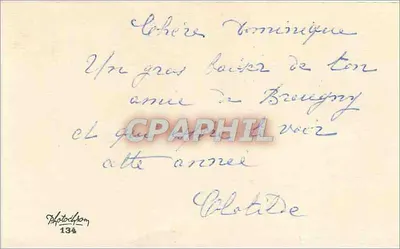 Chère Dominique
Un gros baiser de ton
amie de Breugny
et que j'espère te voir
cette année
Clotilde
CPAPHIL
Photochrom
134